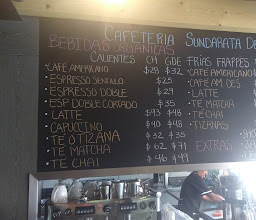 CAFETERIA SUNDARATA DE
BEBIDAS ORGANICAS
CALIENTES CH GDE FRIAS FRAPPES
• CAFÉ AMERICANO $28 $32
• ESPRESSO SENCILLO $25
• ESPRESSO DOBLE $29
• ESP DOBLE CORTADO $35
• LATTE $43 $48
• CAPUCCINO $40 $48
• TÉ O TIZANA $32 $35
• TE MATCHA $62 $71
• TE CHAI $46 $49
• CAFÉ AMERICANO
• LATTE
• TE MATCHA
• TE CHAI
• TIZANAS
EXTRAS